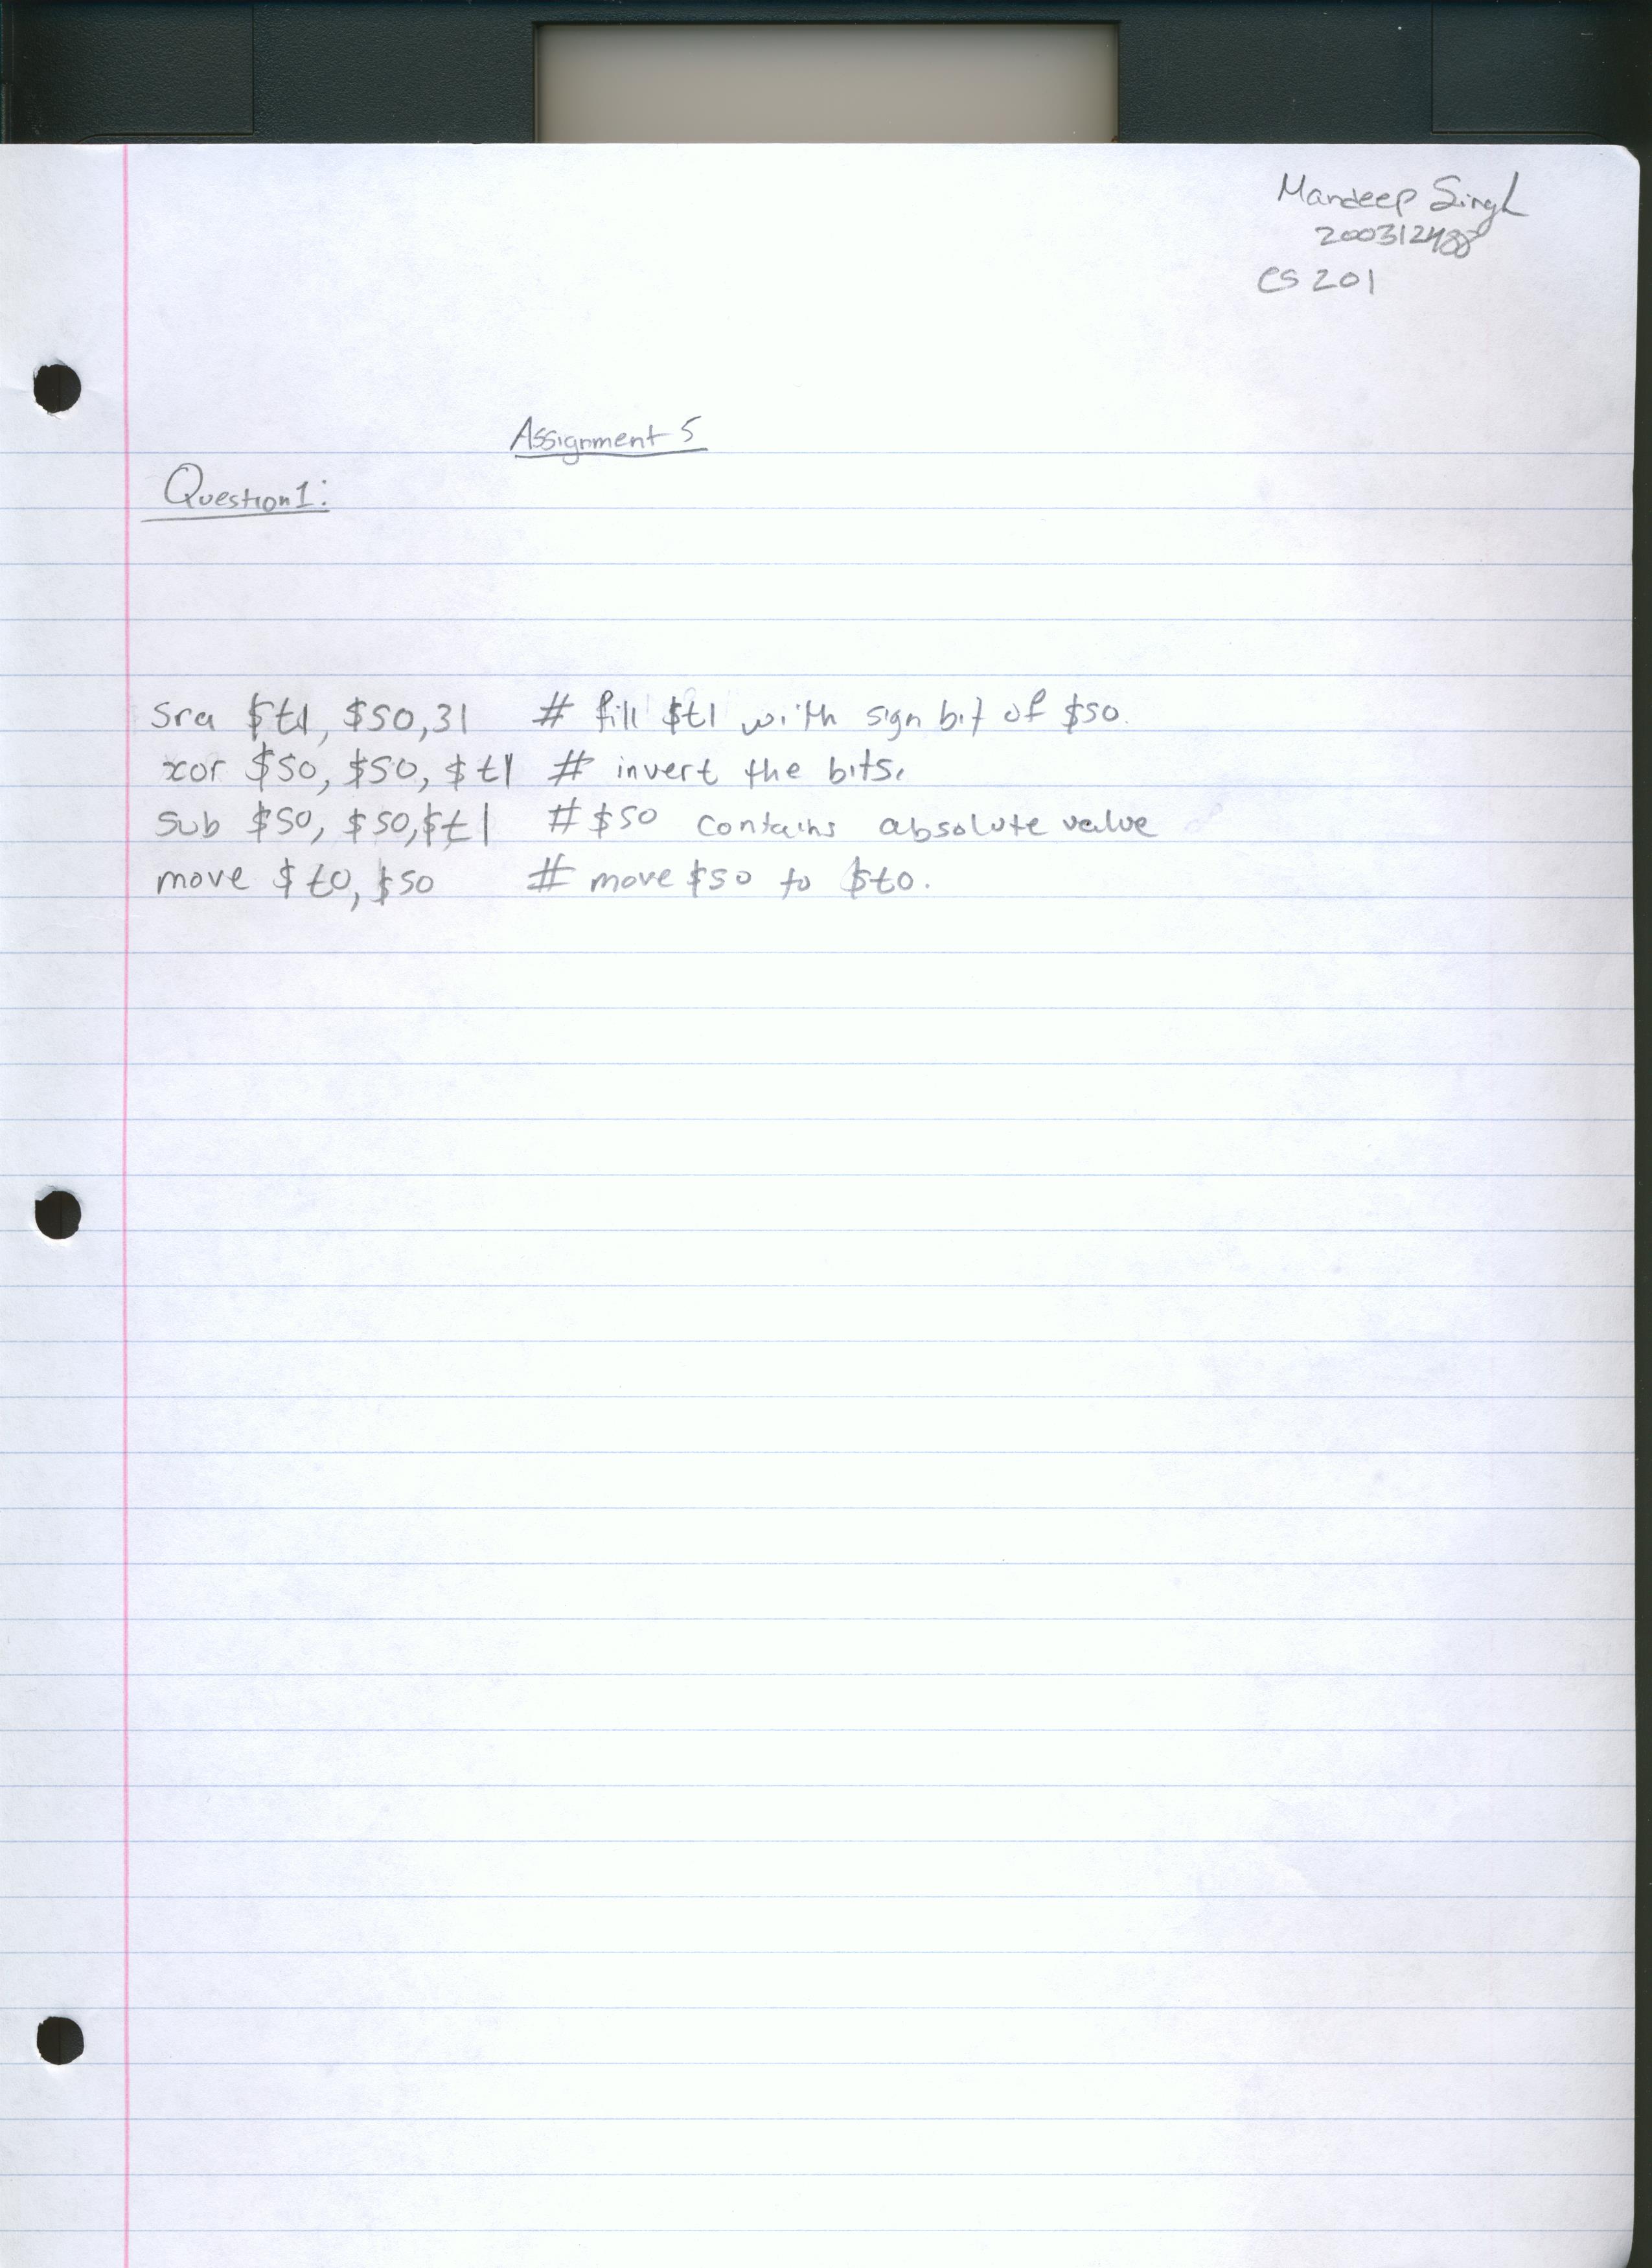 Mandeep Singh
CS 201
Assignment 5
Question 1:
sra $t1, $s0, 31 # fill $t1 with sign bit of $s0.
xor $s0, $s0, $t1 # invert the bits.
sub $s0, $s0, $t1 # $s0 contains absolute value
move $t0, $s0 # move $s0 to $t0.